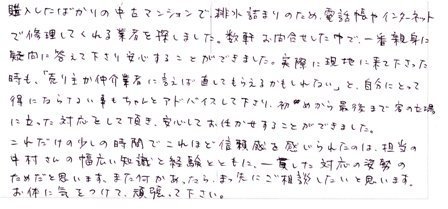 購入したばかりの中古マンションで、排水詰まりのため、電話帳やインターネット
で修理してくれる業者を探しました。数軒お問合せした中で、一番親身に
疑問に答えて下さり安心することができました。実際に現地に来て下さった
時も、「売り主か仲介業者に言えば直してもらえるかもしれない」と、自分にとって
得にならない事もちゃんとアドバイスして下さり、初めから最後まで客の立場
に立った対応をして頂き、安心してお任せすることができました。
これだけの少しの時間でこれほど信頼感を感じられたのは、担当の
中村さんの幅広い知識と経験とともに、一貫した対応の姿勢の
ためだと思います。また何かあったら、まっ先にご相談したいと思います。
お体に気をつけて、頑張って下さい。